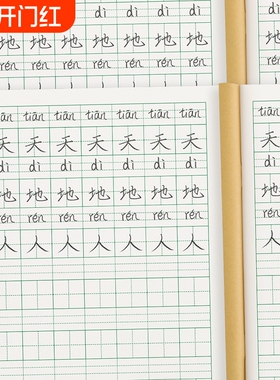 开门红
dì dì dì
地 地 地 地 地 地 地
rén rén rén rén rén rén rén
dì
地
rén
tiān tiān tiān tiān tiān tiān tiān
天 天 天 天 天 天 天
dì dì dì dì dì dì dì
地 地 地 地 地 地 地
rén rén rén rén rén rén rén
人 人 人 人 人 人 人
tiān
天
dì
地
rén
人